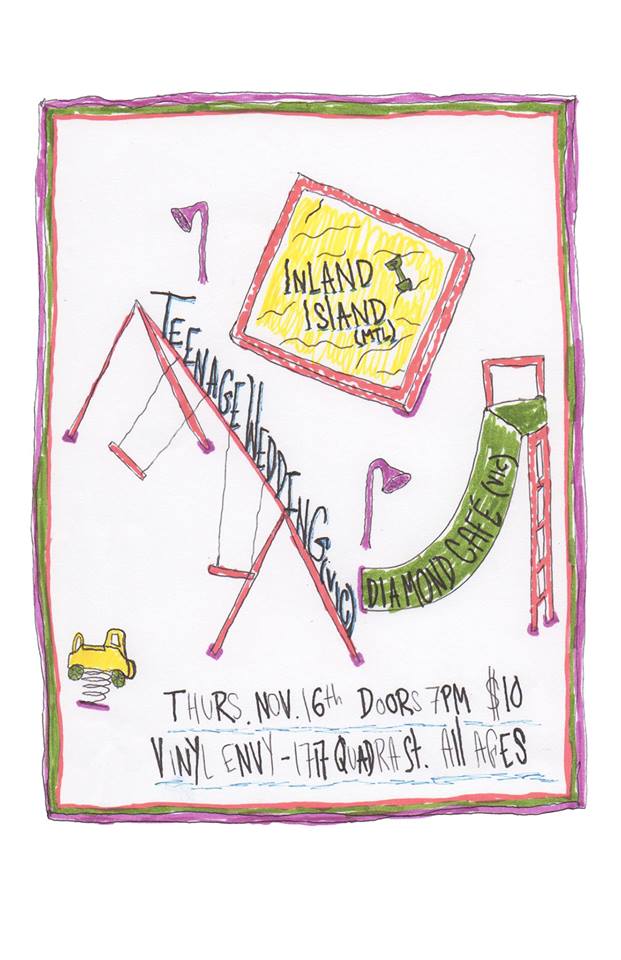 INLAND
ISLAND
(MTL)
TEENAGE WEDDING (VIC)
DIAMOND CAFÉ (VIC)
THURS. NOV. 16th DOORS 7PM $10
VINYL ENVY - 1717 QUADRA St. All AGES